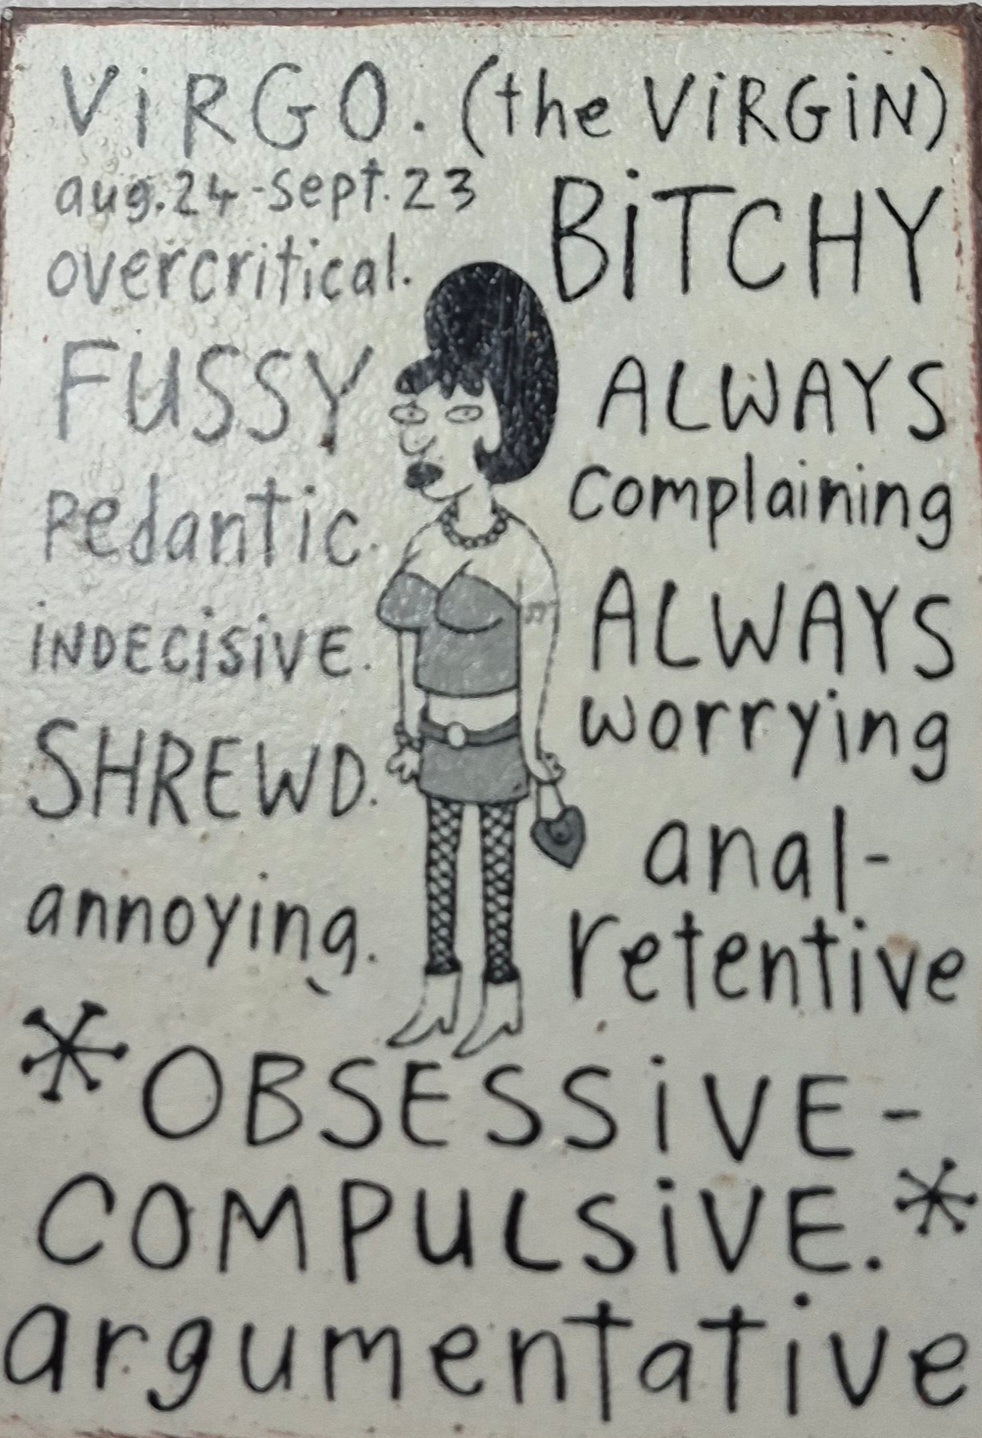 ViRGO. (the ViRGiN)
aug.24-sept.23
BiTCHY
overcritical.
FUSSY
ALWAYS
complaining
Pedantic.
ALWAYS
worrying
iNDECiSiVE.
SHREWD.
anal-
retentive
annoying.
*OBSESSiVE-
COMPULSiVE.*
argumentative